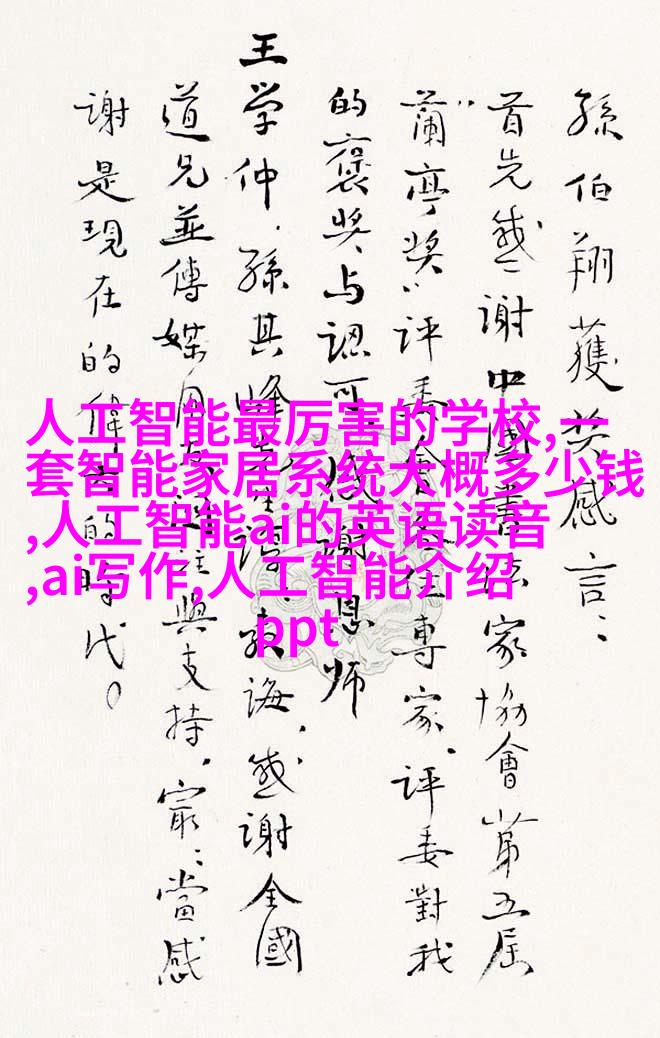 孫伯翔獲奖感言：
首先感謝中國書法家協會第五届
“蘭亭奖”评委会各位專家、评委對我
的褒奖与認可，感謝恩师
王学仲、孫其峰先生教誨，感谢全國
道兄並傳媒注與支持，最：當感
谢是現在的偉大的時代。
人工智能最厉害的学校,一
套智能家居系统大概多少钱
,人工智能ai的英语读音
,ai写作,人工智能介绍
ppt